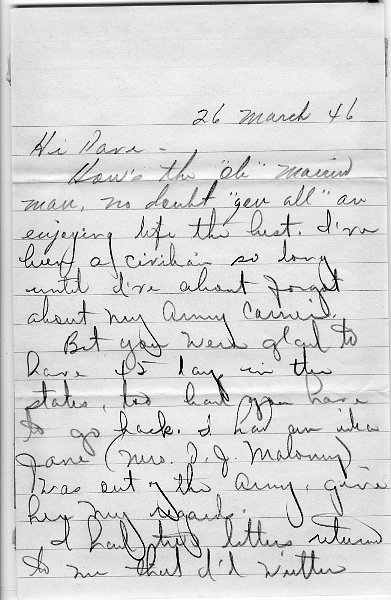 26 March 46
Hi Dave -
How's the "ole" married
man, no doubt "you all" are
enjoying life the best. I've
been a civilian so long
until I've about forgot
about my Army Career.
Bet you were glad to
have 45 days in the
states, too bad you have
to go back. I had an idea
Jane (Mrs. D. J. Maloney)
was out of the Army, give
her my regards.
I had two letters return
to me that I'd written